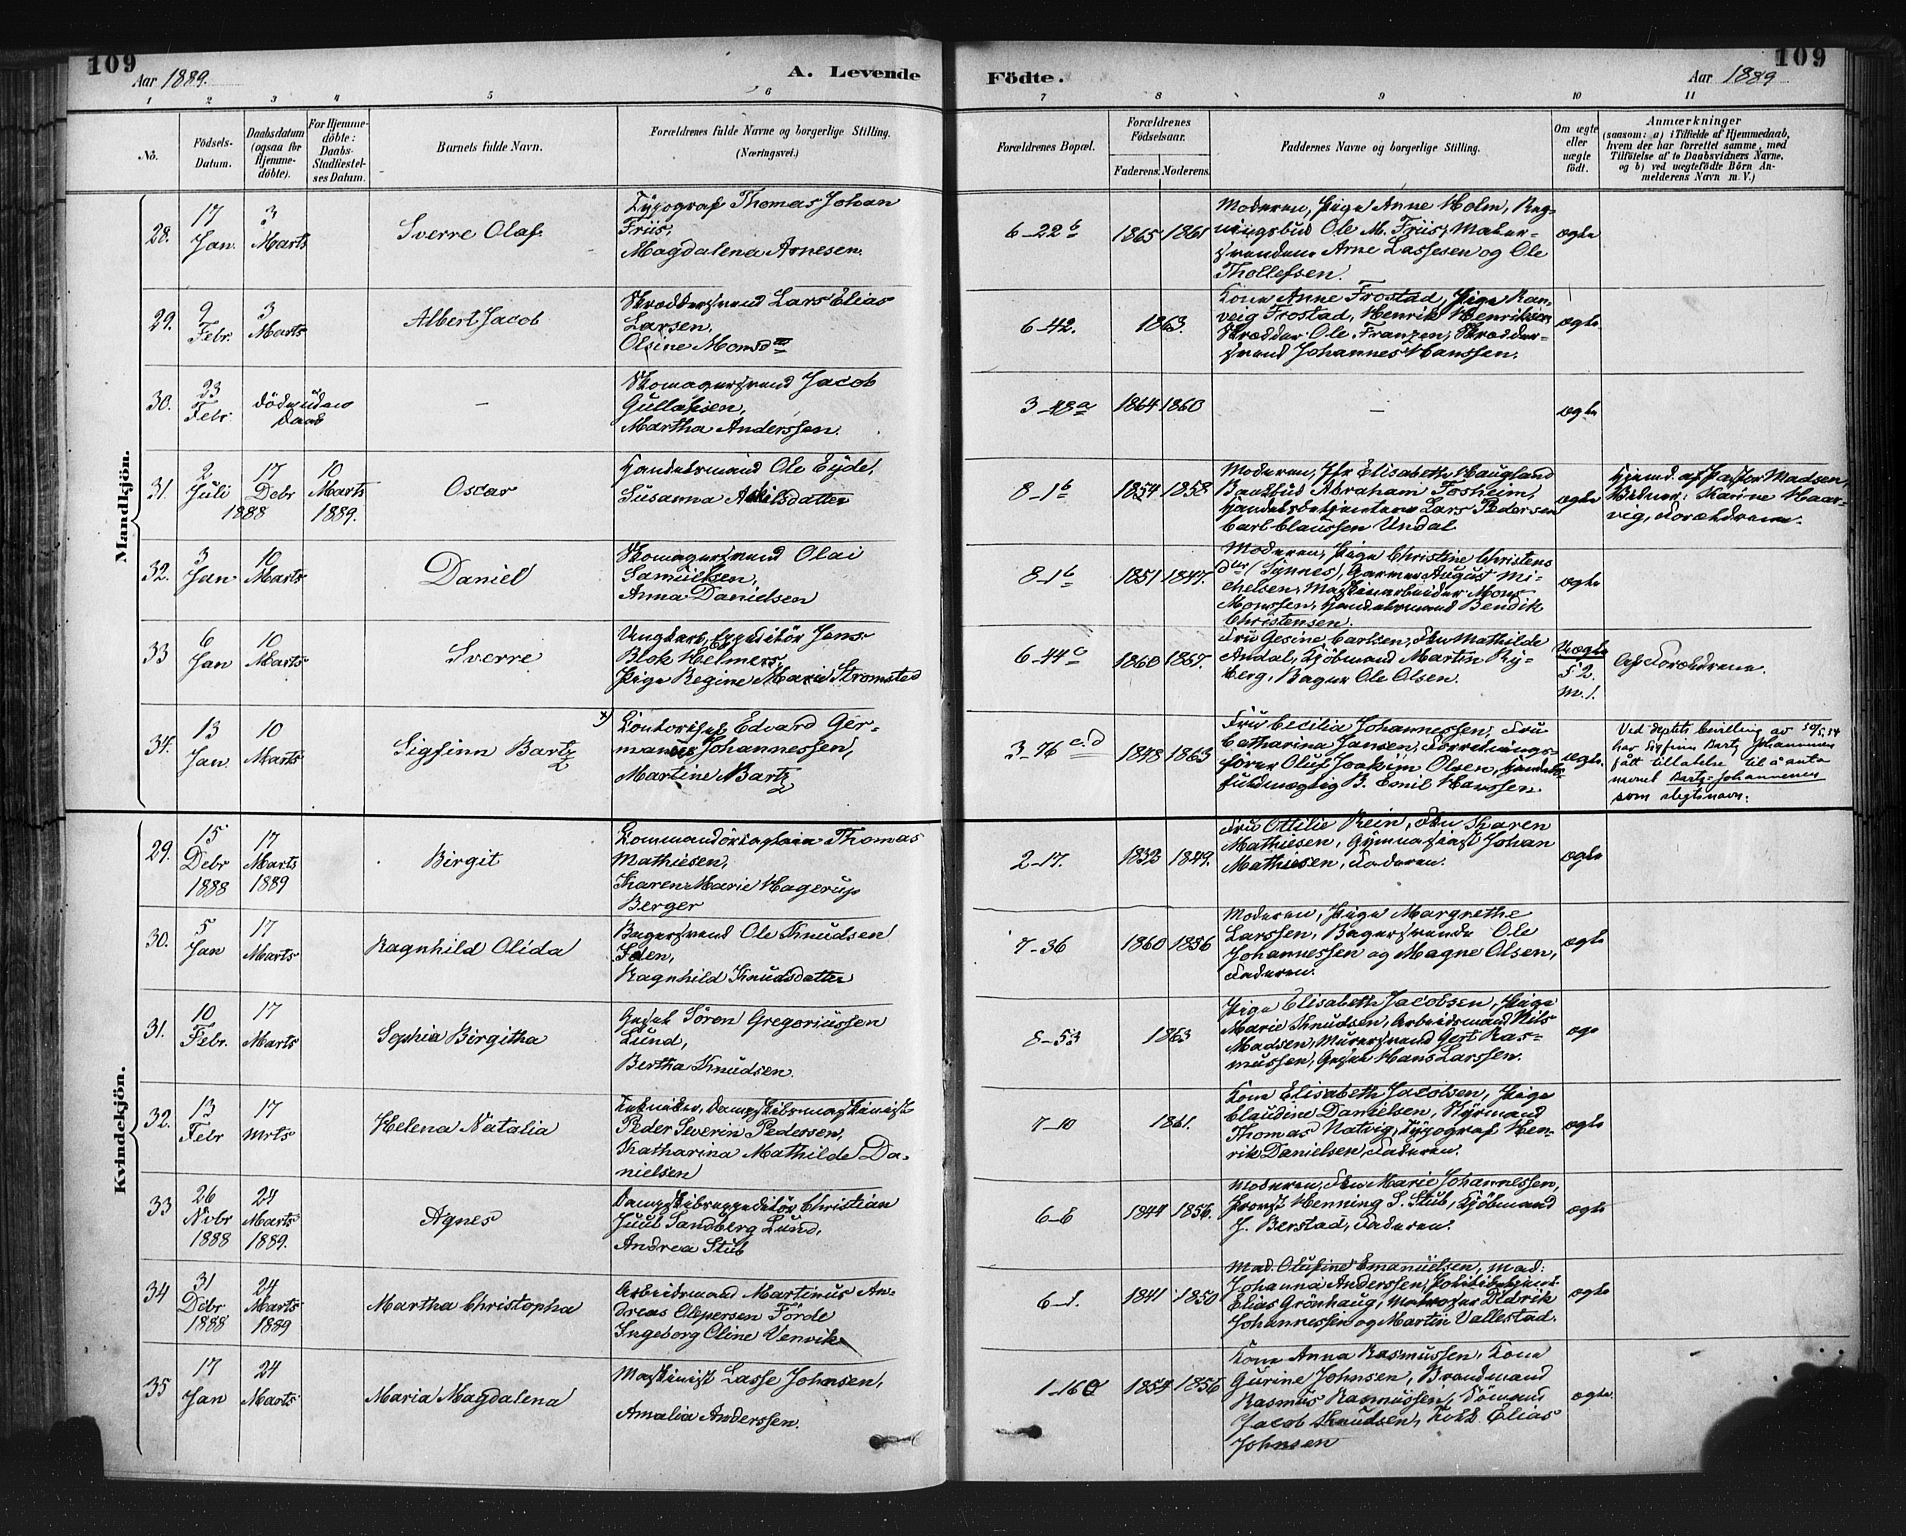 109
Aar 1889.
A. Levende
Födte.
Aar 1889
109
1 2 3 4 5 6 7 8 9 10 11
No.
Födsels-
Datum.
Daabsdatum
(ogsaa for
Hjemme-
döbte).
For Hjemme-
döbte:
Daabs-
Stadfæstel-
ses Datum.
Barnets fulde Navn.
Forældrenes fulde Navne og borgerlige Stilling.
(Næringsvei.)
Forældrenes Bopæl.
Forældrenes
Födselsaar.
Faderens. Moderens.
Faddernes Navne og borgerlige Stilling.
Om ægte
eller
uægte
födt.
Anmærkninger
(saasom: a) i Tilfælde af Hjemmedaab,
hvem der har forrettet samme, med
Tilföielse af to Daabsvidners Navne,
og b) ved uægtefödte Börn An-
melderens Navn m. V.)
Mandkjön.
28.
17
Jan.
3
Marts
Sverre Olaf.
Typograf Thomas Johan
Friis,
Magdalena Arnesen.
6-22b
1865 1861
Moderen, Pige Anne Holm, Reg-
ningsbud Ole M. Friis, Maler-
svendene Arne Lassesen og Ole
Thollefsen.
ægte
29.
9
Febr.
3
Marts
Albert Jacob
Skræddersvend Lars Elias
Larsen,
Olsine Monsdtr
6-42.
1863.
Kone Anne Frostad, Pige Ran-
veig Frostad, Henrik Henriksen,
Skrædder Ole Franzen, Skrædder-
svend Johannes Hanssen.
ægte
30.
23
Febr.
död uden
Daab
-
Skomagersvend Jacob
Gullaksen,
Martha Anderssen.
3-48a
1864 1860
-
ægte
31.
2
Juli
17
Debr
1888
10
Marts
1889.
Oscar
Handelsmand Ole Eyde,
Susanna Askilsdatter
8-1b
1854 1858
Moderen, Jfr Elisabeth Haugland
Bankbud Abraham Fosheim,
Handelsbetjentene Lars Pedersen
Carl Claussen Undal
ægte
Hjemd. af Pastor Madsen,
Vidner: Karine Haar-
vig, Forældrene.
32.
3
Jan
10
Marts
Daniel
Skomagersvend Olai
Samuelsen,
Anna Danielsen
8-1b
1851 1847.
Moderen, Pige Christine Christens
dtr (Synnes), Garver August Mi-
chelsen, Maskinarbeider Mons
Monssen, Handelsmand Bendik
Christensen.
ægte
33
6
Jan
10
Marts
Sverre
Ungkarl, Expeditör Jens
Blok Helmers,
Pige Regine Marie Stromsted
6-44c
1860 1867.
Fru Gesine Carlsen, Fru Mathilde
Andal, Kjöbmand Martin Ry-
berg, Bager Ole Olsen.
Uægte
F 2.
M. 1.
Af Forældrene.
34.
13
Jan.
10
Marts
Sigfinn Bartz
x) Contorist Edvard Ger-
manus Johannessen,
Martine Bartz
3-76 c.d
1848 1863
Fru Cecilia Johannessen, Fru
Catharina Jansen, Forretnings-
förer Oluf Joakim Olsen, Handels-
fuldmægtig B. Emil Hanssen.
ægte.
Ved deptets bevilling av 30/5.24
har Sigfinn Bartz Johannessen
fått tillatelse til å anta
navnet Bartz-Johannessen
som slegtsnavn.
Kvindekjön.
29.
15
Debr
1888
17
Marts
1889
Birgit
Commandörcaptain Thomas
Mathiesen,
Karen Marie Hagerup
Berger
2-17.
1832 1849.
Fru Ottilie Rein, Fru Karen
Mathiesen, Gymnasiast Johan
Mathiesen, Faderen.
ægte
30.
5
Jan
17
Marts
Ragnhild Olida
Bagersvend Ole Knudsen
Foen,
Ragnhild Knudsdatter
7-36
1860 1856
Moderen, Pige Margrethe
Larssen, Bagersvende Ole
Johannessen og Magne Olsen,
Faderen.
ægte
31.
10
Febr.
17
Marts
Sophia Birgitha
Sören Gregoriussen
Lund,
Bertha Knudsen.
8-53
1863
Pige Elisabeth Jacobsen, Pige
Marie Knudsen, Arbeidsmand Nils
Madsen, Murersvend Gert Ras-
mussen, Hans Larssen.
32.
13
Febr
17
Mrts
Helena Natalia
Enkemand, Dampskibsmaskinist
Peder Severin Pedersen,
Katharina Mathilde Da-
nielsen
7-10
1861.
Kone Elisabeth Jacobsen, Pige
Claudine Danielsen, Styrmand
Thomas Natvig, Typograf Hen-
rik Danielsen, Faderen.
ægte
33
26
Nvbr
1888
24
Marts
1889.
Agnes
Dampskibsexpeditör Christian
Juul Sandberg Lund,
Andrea Stub
6-6
1844 1856.
Moderen, Fru Marie Johannessen,
Provst Henning S. Stub, Kjöbmand
J. Berstad, Faderen.
ægte
34
31
Debr
1888
24
Marts
1889
Martha Christopha
Arbeidsmand Martinus An-
dreas Espersen Förde
Ingeborg Oline Venvik
6-1.
1841 1850
Mad. Olufine Emanuelsen, Mad.
Johanna Anderssen, Politibetjent
Elias Grönhaug, Matroser Didrik
Johannessen og Martin Vallestad.
ægte
35
17
Jan
24
Marts
Maria Magdalena
Maskinist Lasse Johnsen,
Amalia Anderssen.
1-16c
1854 1856
Kone Anna Rasmussen, Kone
Gurine Johnsen, Brandmand
Rasmus Rasmussen, Sömand
Jacob Knudsen, Kokk Elias
Johnsen
ægte